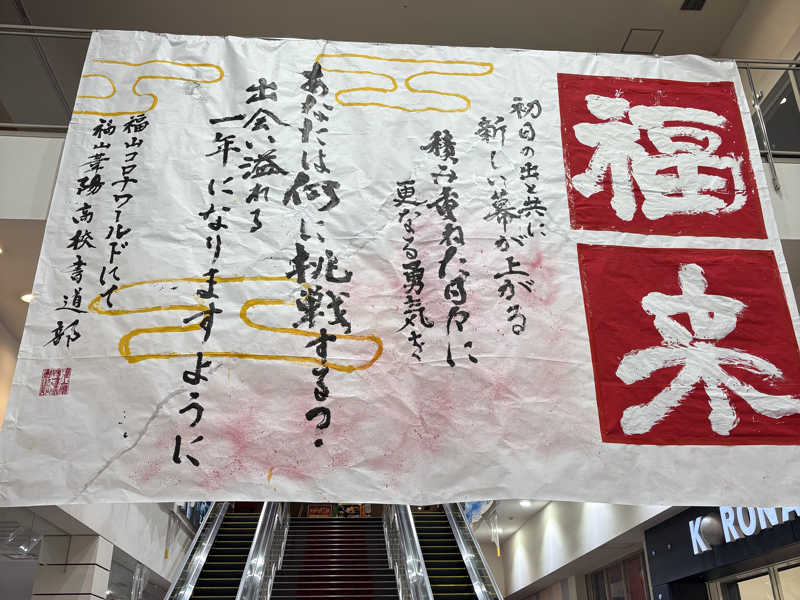 福来
初日の出と共に
新しい幕が上がる
積み重ねた日々に
更なる勇気を
あなたは何に挑戦するの・
出会い溢れる
一年になりますように
福山コロナワールドにて
福山葦陽高校書道部
KORONA